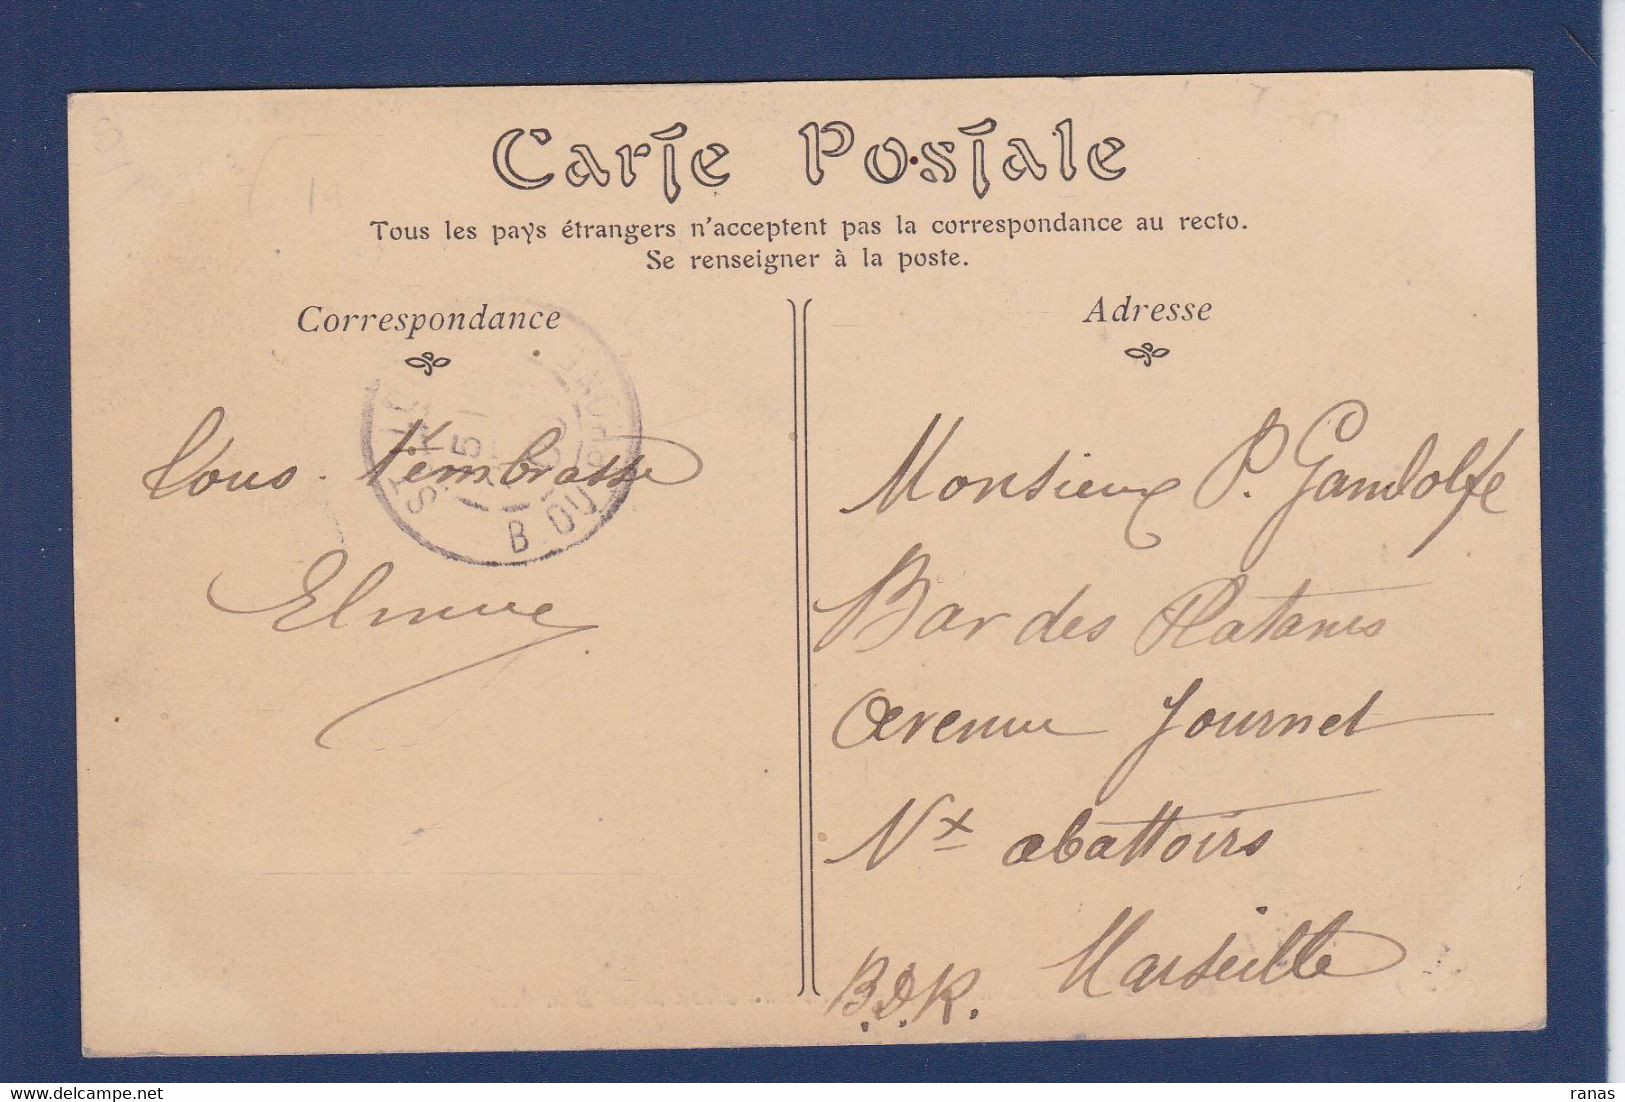 Carte Postale
Tous les pays étrangers n'acceptent pas la correspondance au recto.
Se renseigner à la poste.
Correspondance
Adresse
t'embrasse
Monsieur P. Gandolfe
Bar des Platanes
Avenue Journet
Nx abattoirs
Marseille
B.D.R.
B DU
ranas